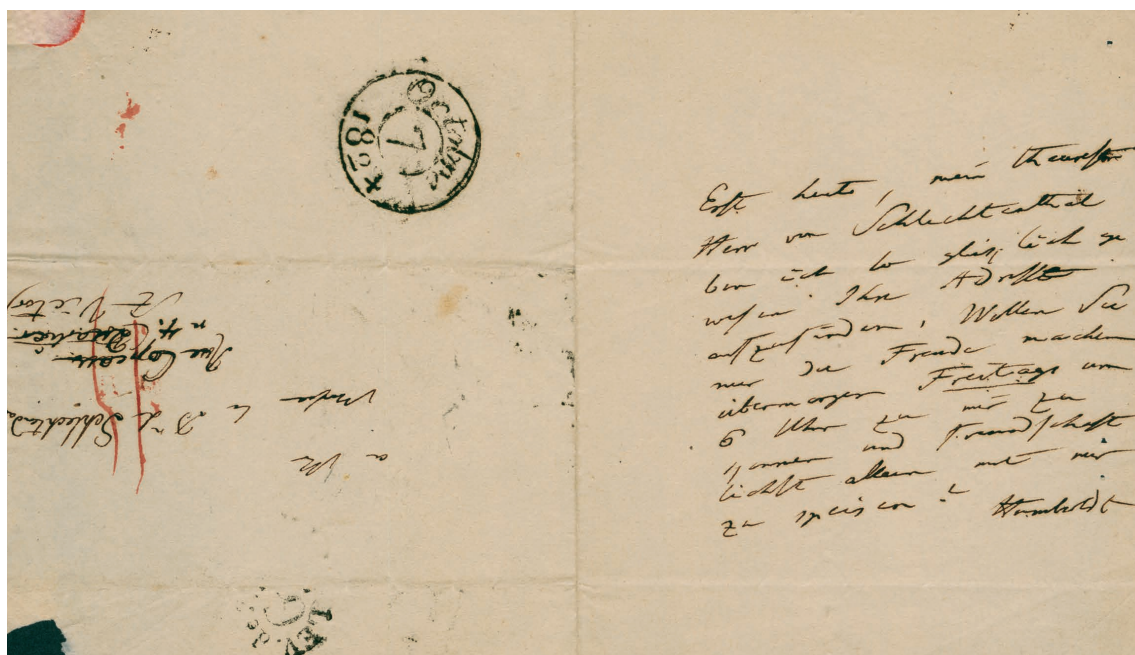 Erst heute, mein theurester
Herr von Schlechtenthal
bin ich so glücklich ge
wesen Ihre Adresse
aufzufinden. Wollen Sie
mir die Freude machen
übermorgen Freitags um
6 Uhr zu mir zu
kommen und freundschaft
lichst allein mit mir
zu speisen? Humboldt
Octobre
7
1824
a Mr
Monsieur le Dr de Schlechtend
Rue Copeau
n. 4.
St Victor
LEV. de